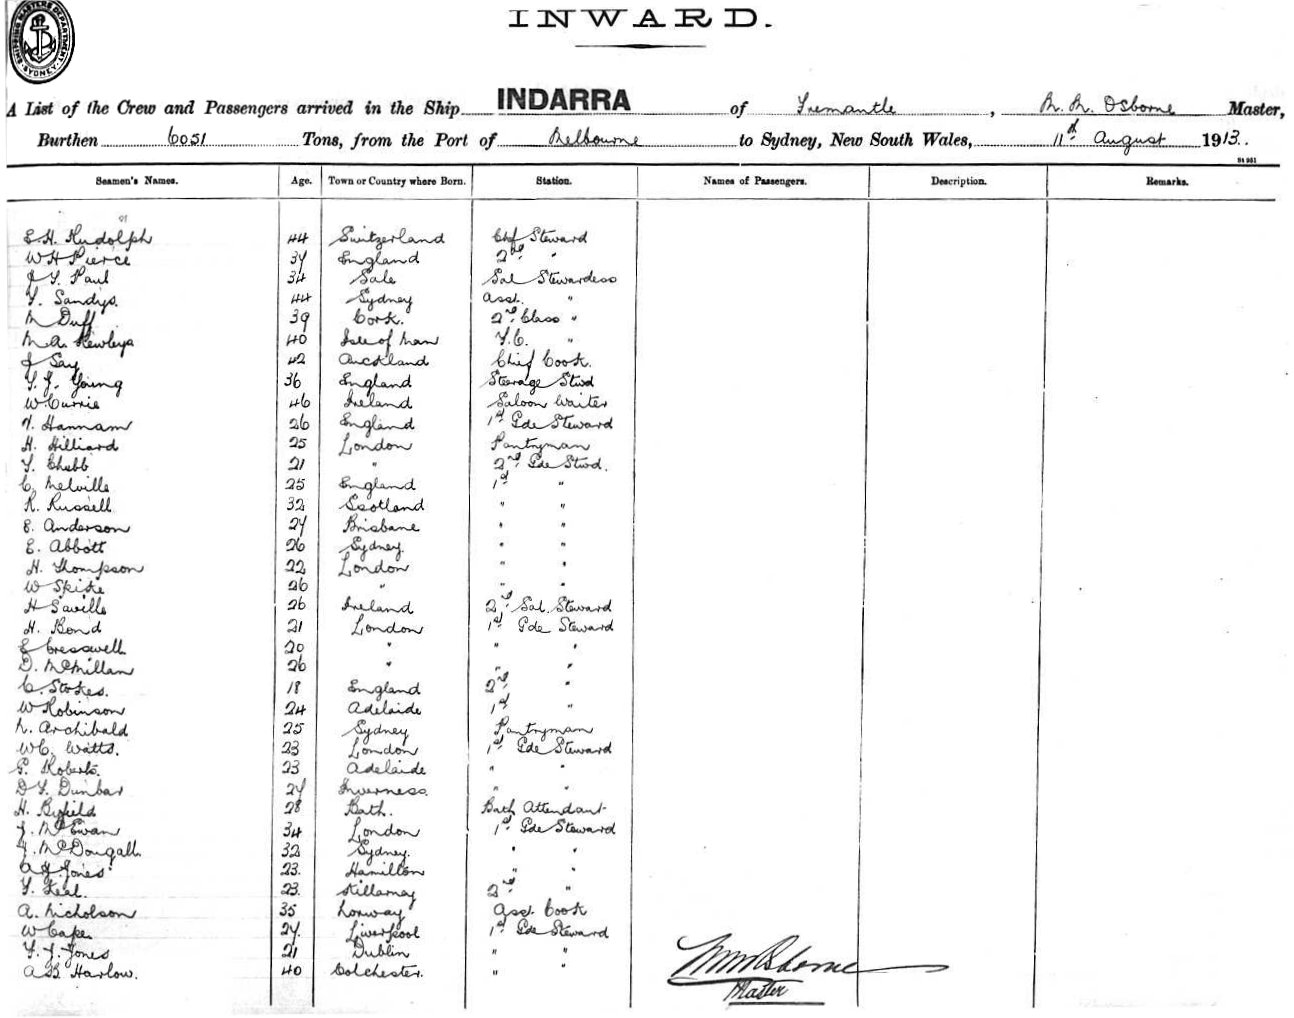 SHIPPING MASTERS DEPARTMENT. SYDNEY.
INWARD.
A List of the Crew and Passengers arrived in the Ship INDARRA of Fremantle, M. M. Osborne Master,
Burthen 6051 Tons, from the Port of Melbourne to Sydney, New South Wales, 11th August 1913.
St 961
Seamen's Names. Age. Town or Country where Born. Station. Names of Passengers. Description. Remarks.
E. H. Rudolph 44 Switzerland Chf Steward
W H Pierce 37 England 2nd "
J. Y. Paul 34 Sale Sal Stewardess
Y. Sandys. 44 Sydney Asst. "
M Duff 39 Cork. 2nd Class "
M. A. Kewleys 40 Isle of Man Y.C. "
J Say 42 Auckland Chief Cook.
Y. J. Young 36 England Steerage Stwd
W Currie 46 Ireland Saloon Waiter
Hannam 26 England 1st Gde Steward
H. Hilliard 25 London Pantryman
Y. Chebb 21 " 2nd Gde Stwd.
C. Melville 25 England 1st "
R. Russell 32 Scotland " "
E. Anderson 27 Brisbane " "
E. Abbott 26 Sydney. " "
H. Thompson 22 London " "
W Spike 26 " " "
H Saville 26 Ireland 2nd Sal. Steward
H. Bond 21 London 1st Gde Steward
E Cresswell 20 " " "
D. McMillan 26 " " "
C. Stokes. 18 England 2nd "
W Robinson 24 Adelaide 1st "
N. Archibald 25 Sydney Pantryman
W C. Watts. 23 London 1st Gde Steward
G. Roberts. 23 Adelaide " "
D Y. Dunbar 27 Inverness. " "
H. Byfield 28 Bath. Bath Attendant
J. McEwan 34 London 1st Gde Steward
J. McDougall. 32 Sydney. " "
A J Jones 23. Hamilton " "
Y. Leal. 23. Killarney 2nd "
A. Nicholson 35 Norway Asst. Cook
W Cape. 27 Liverpool 1st Gde Steward
Y. J. Jones 21 Dublin " "
A B Harlow. 40 Colchester. " "
Osborne
Master